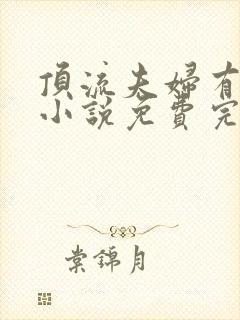 頂流夫婦有
小說免費完
棠錦月